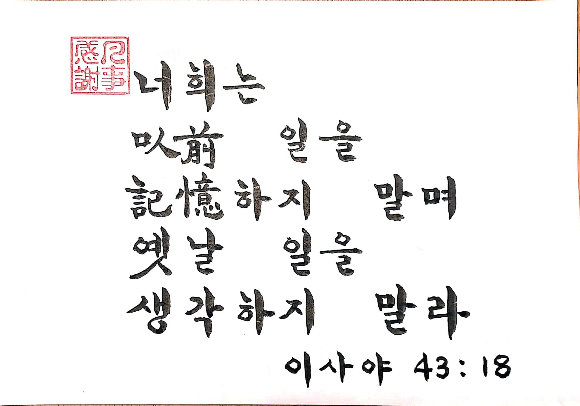 凡事
感謝
너희는
以前 일을
記憶하지 말며
옛날 일을
생각하지 말라
이사야 43:18